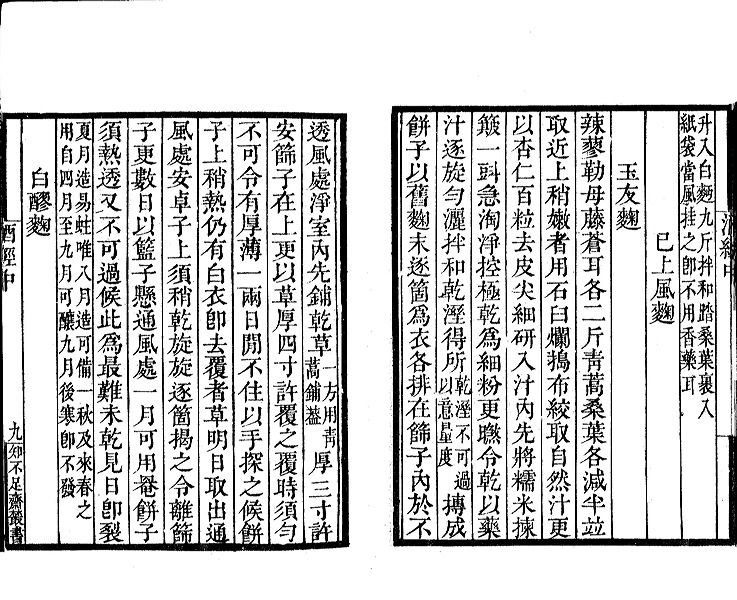 升入白麵九斤拌和踏桑葉裹入
紙袋當風挂之卽不用香藥耳
已上風麴
玉友麴
辣蓼勒母藤蒼耳各二斤靑蒿桑葉各減半並
取近上稍嫩者用石臼爛搗布絞取自然汁更
以杏仁百粒去皮尖細硏入汁內先將糯米揀
簸一㪷急淘淨控極乾爲細粉更㬠令乾以藥
汁逐旋勻灑拌和乾溼得所乾溼不可過以意量度摶成
餅子以舊麴末逐箇爲衣各排在篩子內於不
透風處淨室內先鋪乾草一方用靑蒿鋪蓋厚三寸許
安篩子在上更以草厚四寸許覆之覆時須勻
不可令有厚薄一兩日閒不住以手探之候餅
子上稍熱仍有白衣卽去覆者草明日取出通
風處安卓子上須稍乾旋旋逐箇揭之令離篩
子更數日以籃子懸通風處一月可用罨餅子
須熱透又不可過候此爲最難未乾見日卽裂
夏月造易蛀唯八月造可備一秋及來春之
用自四月至九月可釀九月後寒卽不發
白醪麴
酒經中
九
知不足齋叢書